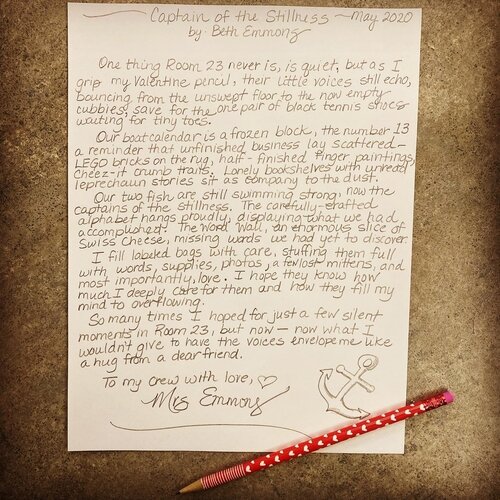 Captain of the Stillness — May 2020
by Beth Emmons
One thing Room 23 never is, is quiet, but as I
grip my Valentine pencil, their little voices still echo,
bouncing from the unswept floor to the now empty
cubbies, save for the one pair of black tennis shoes
waiting for tiny toes.
Our boat calendar is a frozen block, the number 13
a reminder that unfinished business lay scattered—
LEGO bricks on the rug, half-finished finger paintings,
Cheez-it crumb trails. Lonely bookshelves with unread
leprechaun stories sit as company to the dust.
Our two fish are still swimming strong, now the
captains of the stillness. The carefully-crafted
alphabet hangs proudly, displaying what we had
accomplished. The Word Wall, an enormous slice of
Swiss Cheese, missing words we had yet to discover.
I fill labeled bags with care, stuffing them full
with words, supplies, photos, a few lost mittens, and
most importantly, love. I hope they know how
much I deeply care for them and how they fill my
mind to overflowing.
So many times I hoped for just a few silent
moments in Room 23, but now — now what I
wouldn't give to have the voices envelope me like
a hug from a dear friend.
To my crew with love, ♡
Mrs Emmons